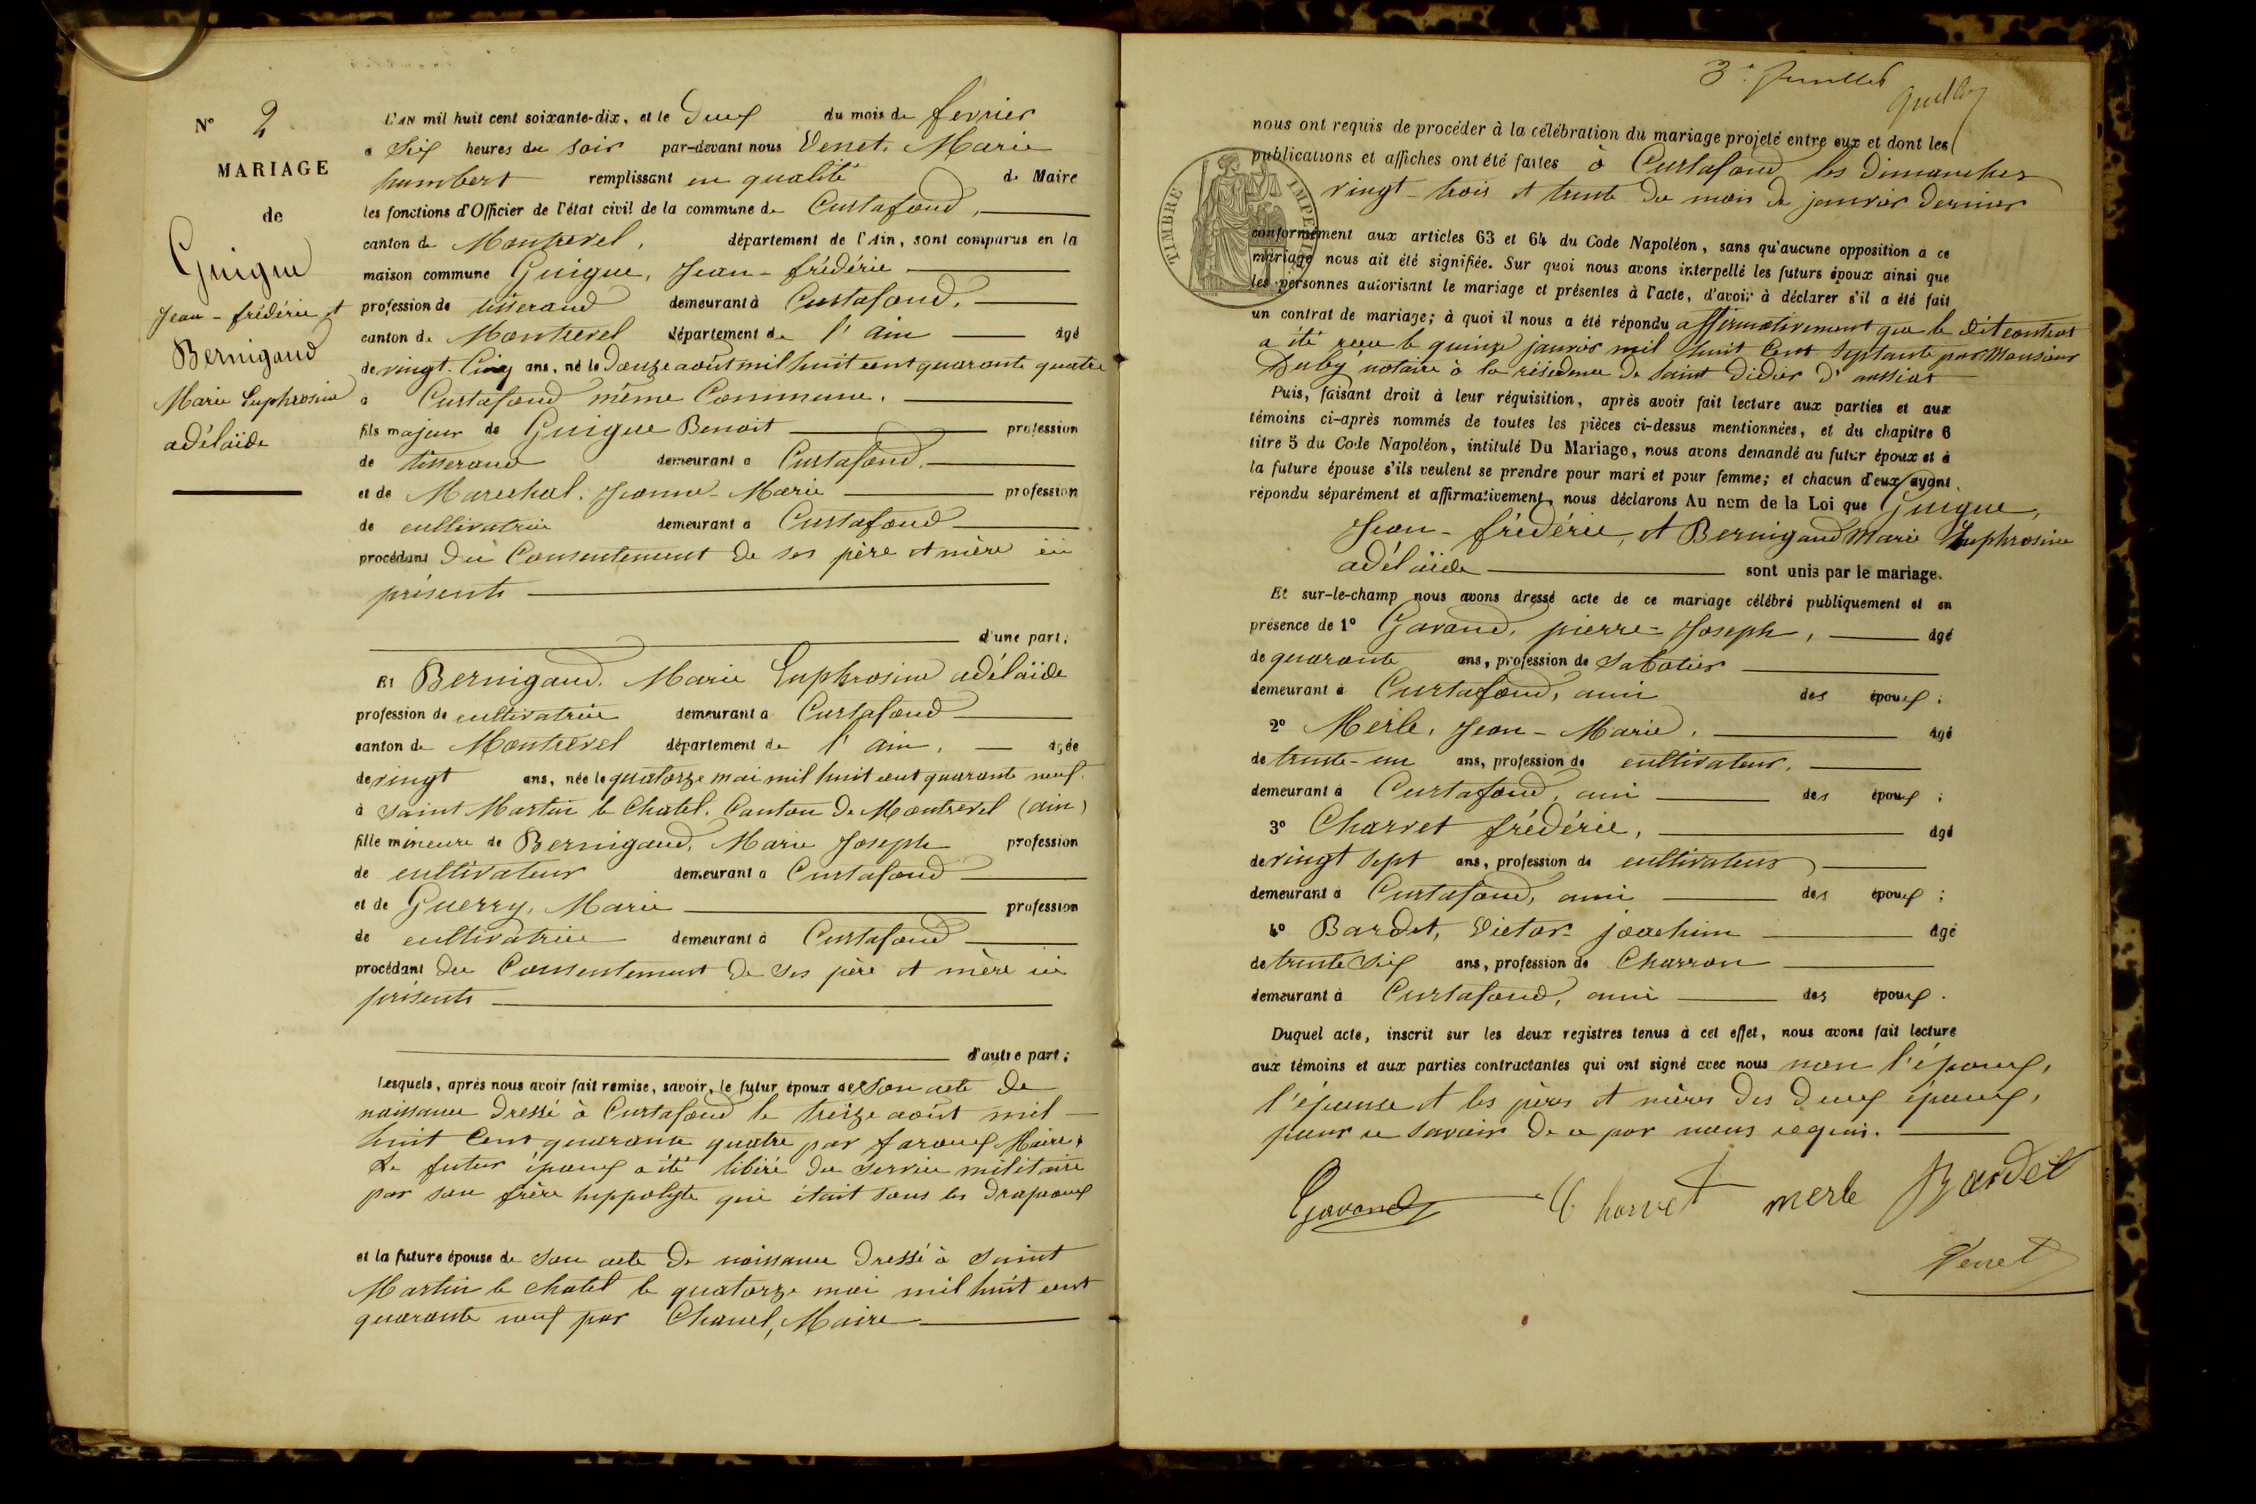 N° 2
MARIAGE
de
Guigue
Jean-frédéric et
Bernigaud
Marie Euphrosine
adélaïde
L'AN mil huit cent soixante-dix, et le Deux du mois de fevrier
a Six heures du soir par-devant nous Venet, Marie
humbert remplissant en qualité de Maire
les fonctions d'Officier de l'état civil de la commune de Curtafond,
canton de Montrevel, département de l'Ain, sont comparus en la
maison commune Guigue, Jean-frédéric
profession de tisserand demeurant à Curtafond,
canton de Montrevel département de l'ain âgé
de vingt-Cinq ans, né le Douze août mil huit cent quarante quatre
à Curtafond même Commune.
fils majeur de Guigue Benoit profession
de tisserand demeurant à Curtafond,
et de Marechal, Jeanne-Marie profession
de cultivatrice demeurant à Curtafond
procédant du Consentement de ses père et mère ici
présents
d'une part;
Et Bernigaud, Marie Euphrosine adélaïde
profession de cultivatrice demeurant à Curtafond
canton de Montrevel département de l'ain, âgée
de vingt ans, née le quatorze mai mil huit cent quarante neuf
à Saint Martin le Chatel, Canton de Montrevel (ain)
fille mineure de Bernigaud, Marie Joseph profession
de cultivateur demeurant à Curtafond
et de Guerry, Marie profession
de cultivatrice demeurant à Curtafond
procédant du Consentement de ses père et mère ici
présents
d'autre part;
Lesquels, après nous avoir fait remise, savoir, le futur époux de son acte de
naissance Dressé à Curtafond le treize août mil
huit Cent quarante quatre par faroux Maire,
Le futur époux a été libéré du Service militaire
par son frère hippolyte qui était sous les Drapeaux
et la future épouse de son acte de naissance Dressé à Saint
Martin le chatel le quatorze mai mil huit cent
quarante neuf par Chanel, Maire
3e feuillet
nous ont requis de procéder à la célébration du mariage projeté entre eux et dont les
publications et affiches ont été faites à Curtafond les Dimanches
vingt-trois et trente du mois de janvier dernier
conformément aux articles 63 et 64 du Code Napoléon, sans qu'aucune opposition à ce
mariage nous ait été signifiée. Sur quoi nous avons interpellé les futurs époux ainsi que
les personnes autorisant le mariage et présentes à l'acte, d'avoir à déclarer s'il a été fait
un contrat de mariage; à quoi il nous a été répondu affirmativement que le dit contrat
a été reçu le quinze janvier mil huit Cent Septante par Monsieur
Duby notaire à la résidence de Saint Didier d'aussiat
Puis, faisant droit à leur réquisition, après avoir fait lecture aux parties et aux
témoins ci-après nommés de toutes les pièces ci-dessus mentionnées, et du chapitre 6
titre 5 du Code Napoléon, intitulé Du Mariage, nous avons demandé au futur époux et à
la future épouse s'ils veulent se prendre pour mari et pour femme; et chacun d'eux ayant
répondu séparément et affirmativement, nous déclarons Au nom de la Loi que Guigue,
Jean-frédéric, et Bernigaud Marie Euphrosine
adélaïde sont unis par le mariage.
Et sur-le-champ nous avons dressé acte de ce mariage célébré publiquement et en
présence de 1° Gavand, pierre-Joseph, âgé
de quarante ans, profession de sabotier
demeurant à Curtafond, ami des époux;
2° Merle, Jean-Marie, âgé
de trente-un ans, profession de cultivateur,
demeurant à Curtafond, ami des époux;
3° Charvet frédéric, âgé
de vingt sept ans, profession de cultivateur
demeurant à Curtafond, ami des époux;
4° Bardet, Victor-joachim âgé
de trente Six ans, profession de Charron
demeurant à Curtafond, ami des époux.
Duquel acte, inscrit sur les deux registres tenus à cet effet, nous avons fait lecture
aux témoins et aux parties contractantes qui ont signé avec nous non l'époux,
l'épouse et les pères et mères des deux époux,
pour ne savoir de ce par nous requis.
Gavand Charvet merle Bardet
Venet
TIMBRE IMPERIAL